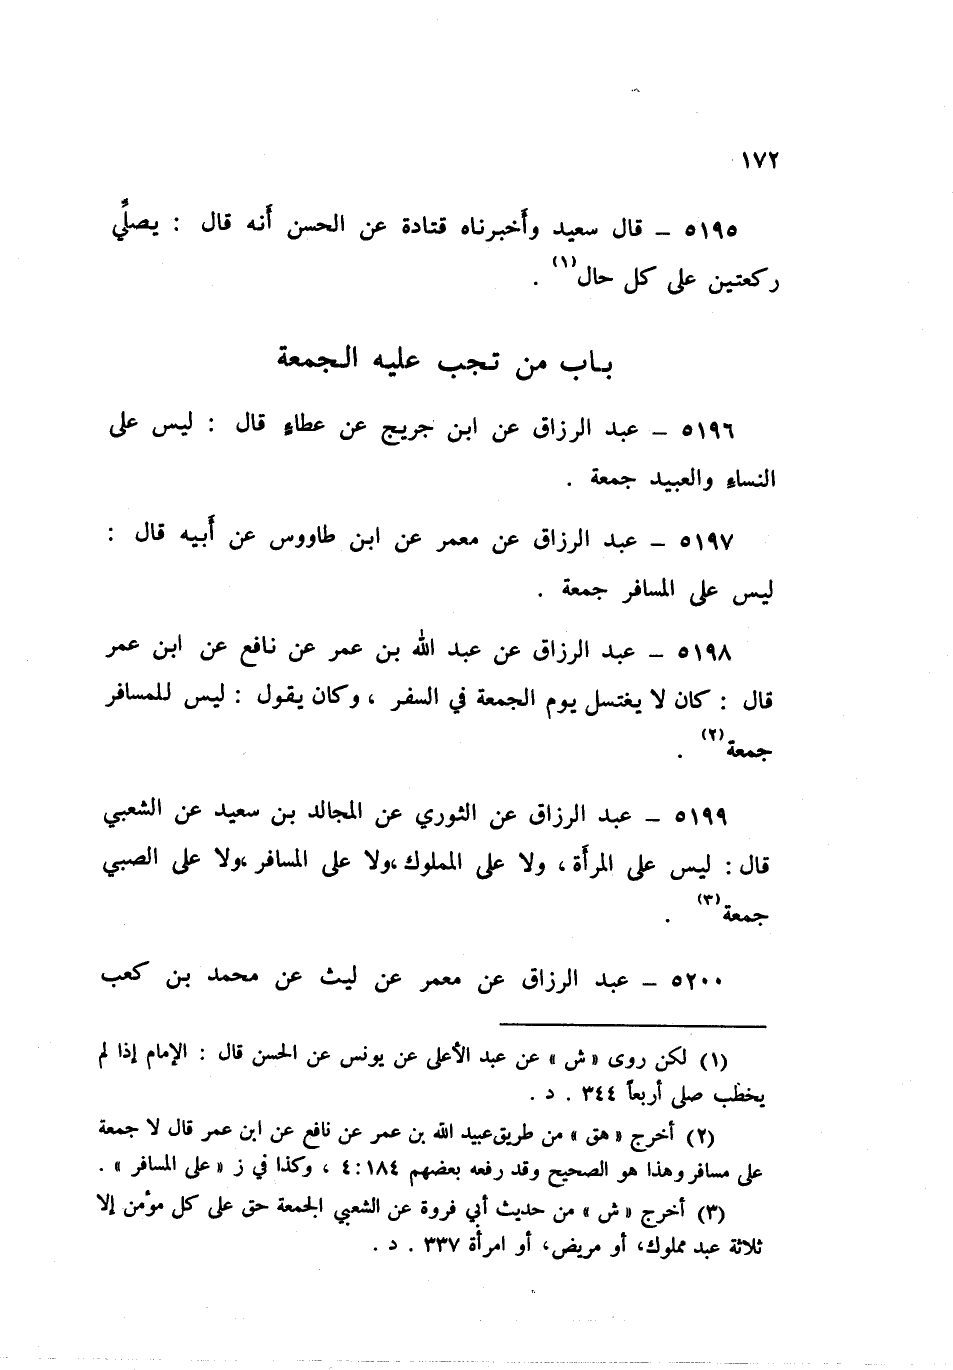 ١٧٢
٥١٩٥ ــ قال سعيد وأَخبرناه قتادة عن الحسن أَنه قال : يصلِّي
ركعتين على كل حال(١) .
بـاب من تـجب عليه الـجمعة
٥١٩٦ ــ عبد الرزاق عن ابن جريج عن عطاءٍ قال : ليس على
النساءِ والعبيد جمعة .
٥١٩٧ ــ عبد الرزاق عن معمر عن ابن طاووس عن أَبيه قال :
ليس على المسافر جمعة .
٥١٩٨ ــ عبد الرزاق عن عبد الله بن عمر عن نافع عن ابن عمر
قال : كان لا يغتسل يوم الجمعة في السفر ، وكان يقول : ليس للمسافر
جمعة(٢) .
٥١٩٩ ــ عبد الرزاق عن الثوري عن المجالد بن سعيد عن الشعبي
قال : ليس على المرأَة ، ولا على المملوك ،ولا على المسافر ،ولا على الصبي
جمعة(٣) .
٥٢٠٠ ــ عبد الرزاق عن معمر عن ليث عن محمد بن كعب
(١) لكن روى « ش » عن عبد الأعلى عن يونس عن الحسن قال : الإمام إذا لم
يخطب صلى أربعاً ٣٤٤ . د .
(٢) أخرج « هق » من طريق عبيد الله بن عمر عن نافع عن ابن عمر قال لا جمعة
على مسافر وهذا هو الصحيح وقد رفعه بعضهم ٤:١٨٤ ، وكذا في ز « على المسافر » .
(٣) أخرج « ش » من حديث أبي فروة عن الشعبي الجمعة حق على كل مؤمن إلا
ثلاثة عبد مملوك، أو مريض، أو امرأة ٣٣٧ . د .